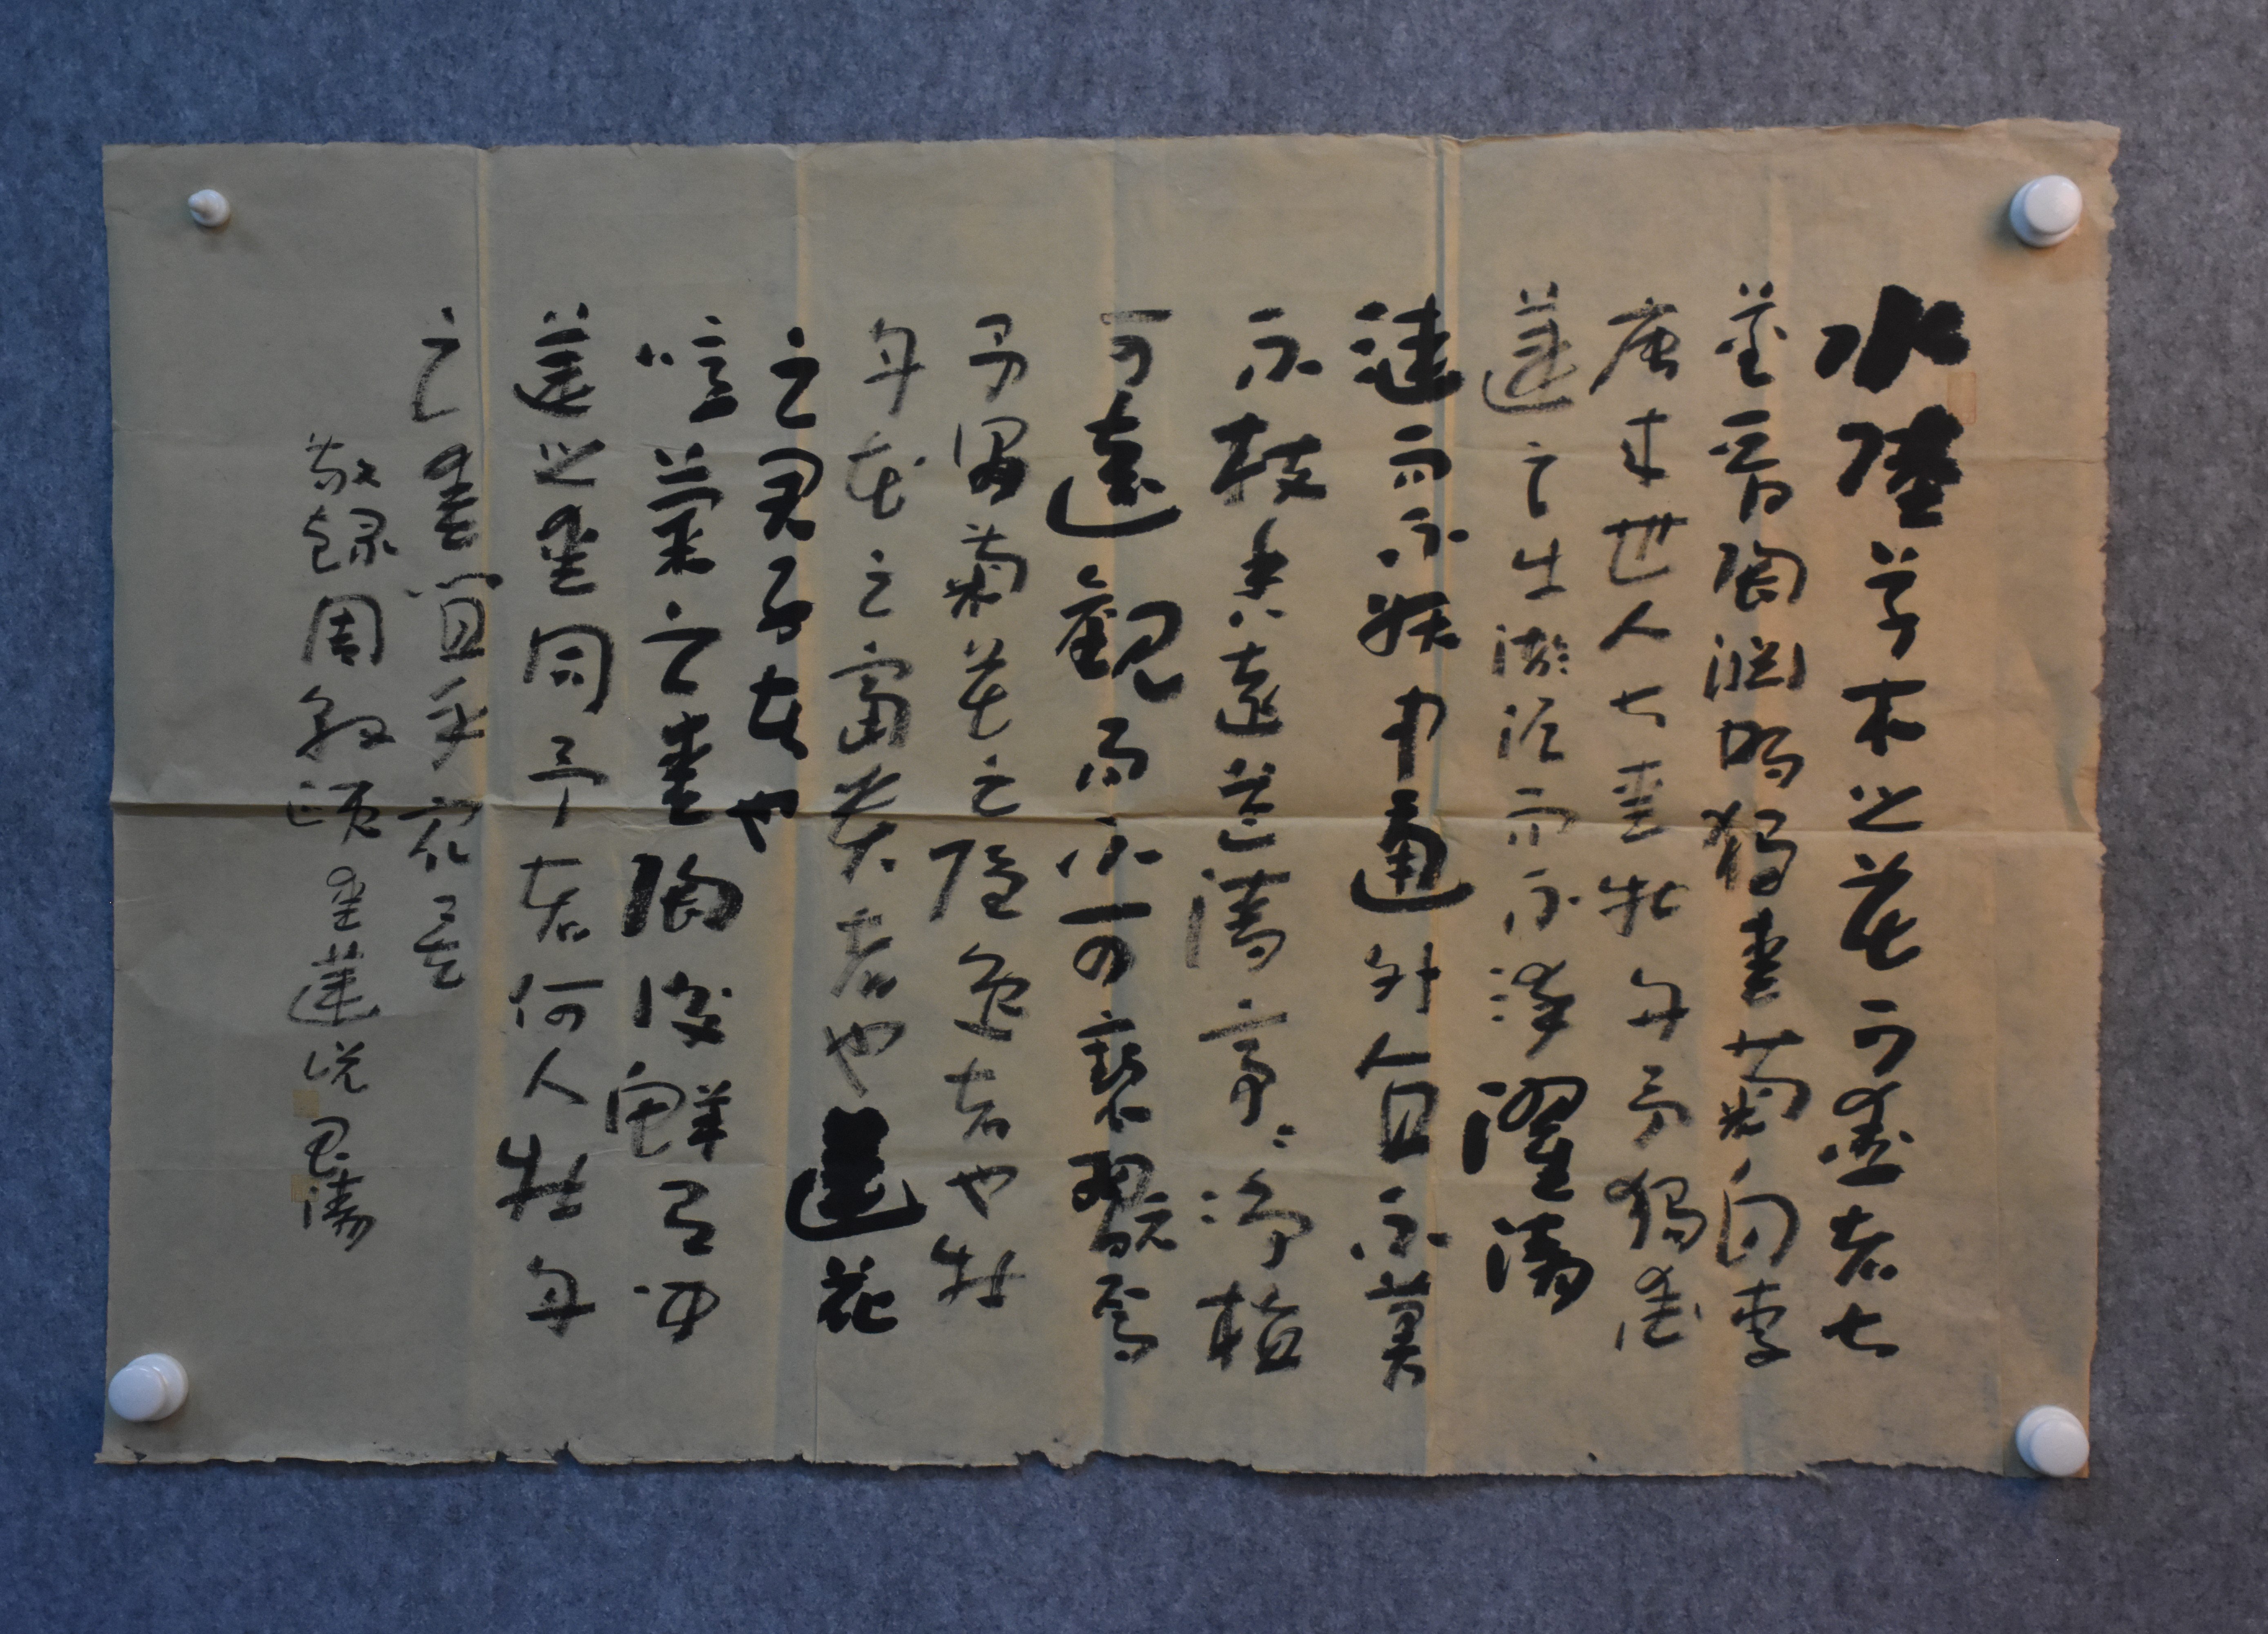 水陸草木之花可愛者甚
蕃晉陶淵明獨愛菊自李
唐来世人甚愛牡丹予獨愛
蓮之出淤泥而不染濯清
漣而不妖中通外直不蔓
不枝香遠益清亭〻淨植
可遠觀而不可褻翫焉
予謂菊花之隱逸者也牡
丹花之富貴者也蓮花
之君子者也
噫菊之愛陶後鮮有聞
蓮之愛同予者何人牡丹
之愛宜乎衆矣
敬録周敦頤愛蓮说